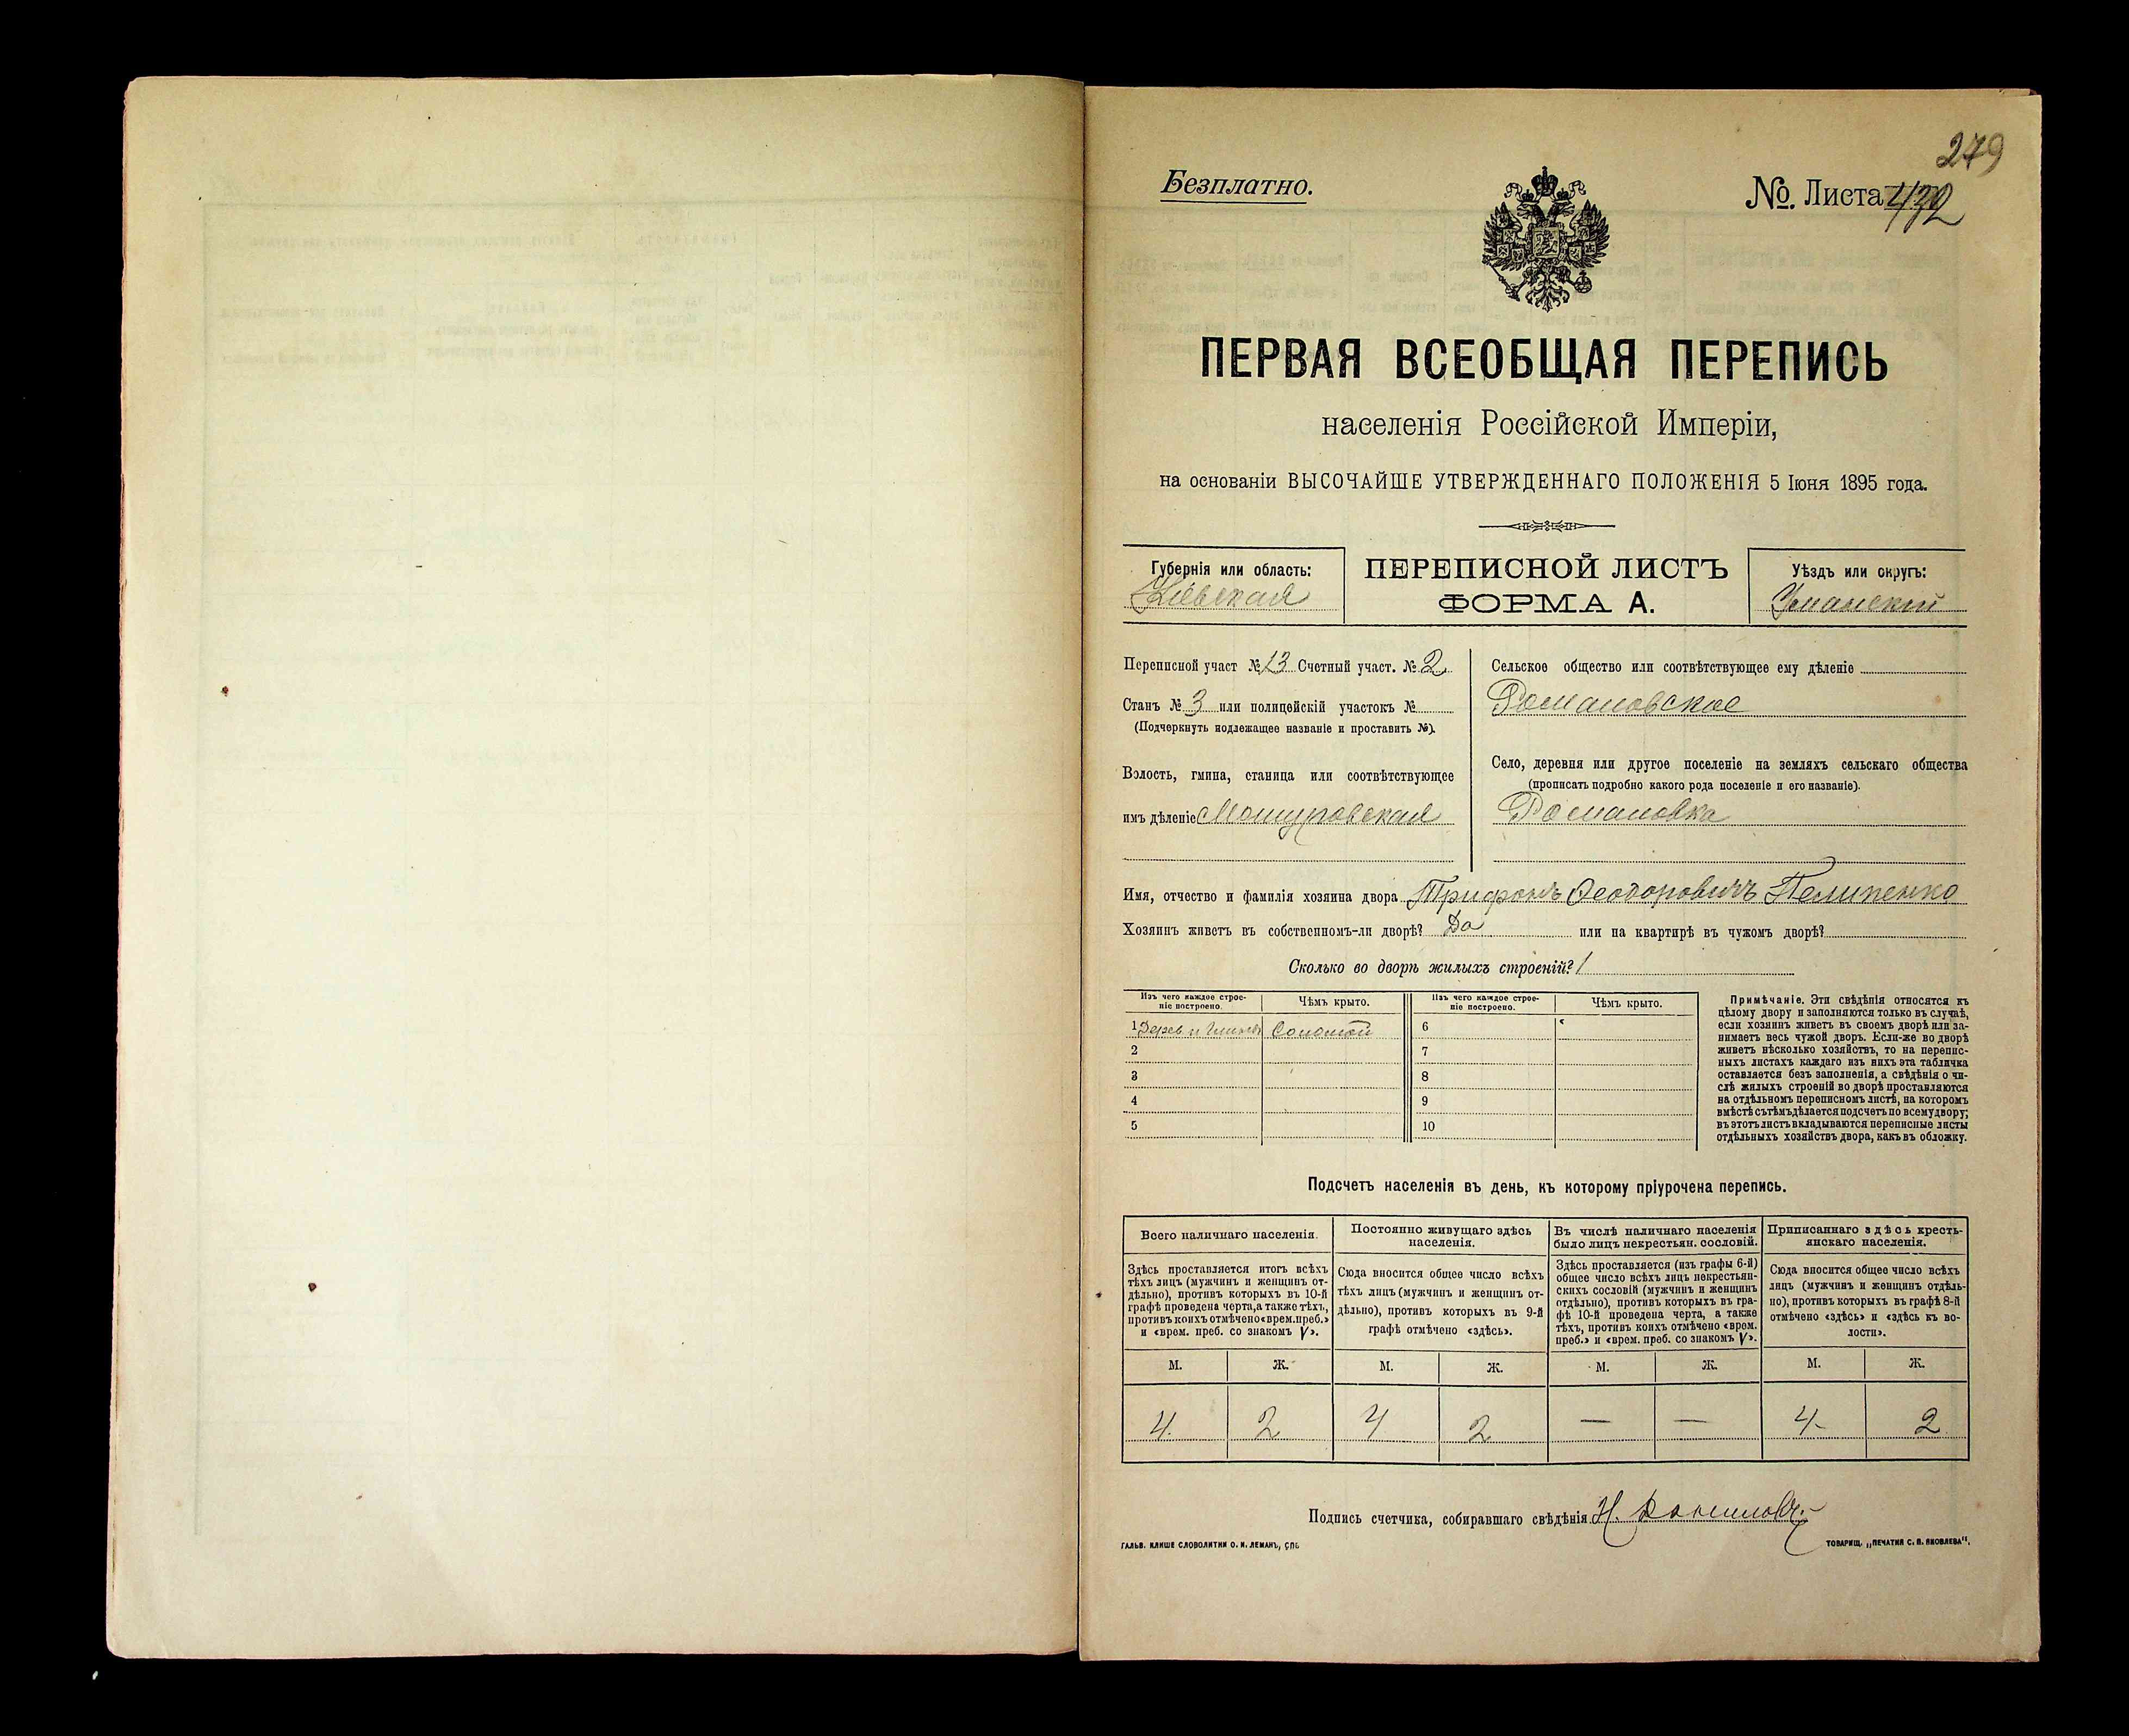 279
Безплатно.
№. Листа 432
ПЕРВАЯ ВСЕОБЩАЯ ПЕРЕПИСЬ
населенія Россійской Имперіи,
на основаніи ВЫСОЧАЙШЕ УТВЕРЖДЕННАГО ПОЛОЖЕНІЯ 5 Іюня 1895 года.
Губернія или область:
Кіевская
ПЕРЕПИСНОЙ ЛИСТЪ
ФОРМА А.
Уѣздъ или округъ:
Уманскій
Переписной участ № 13 Счетный участ. № 2
Станъ № 3 или полицейскій участокъ №
(Подчеркнуть подлежащее названіе и проставить №).
Волость, гмина, станица или соотвѣтствующее
имъ дѣленіе Машуровская
Сельское общество или соотвѣтствующее ему дѣленіе
Романовское
Село, деревня или другое поселеніе на земляхъ сельскаго общества
(прописать подробно какого рода поселеніе и его названіе).
Романовка
Имя, отчество и фамилія хозяина двора Трифонъ Ѳеодоровичъ Пелипенко
Хозяинъ живетъ въ собственномъ-ли дворѣ? Да или на квартирѣ въ чужомъ дворѣ?
Сколько во дворѣ жилыхъ строеній? 1
Изъ чего каждое строе-
ніе построено.
Чѣмъ крыто.
Изъ чего каждое строе-
ніе построено.
Чѣмъ крыто.
1 Дерев. и Глиновъ Соломой 6
2 7
3 8
4 9
5 10
Примѣчаніе. Эти свѣдѣнія относятся къ
цѣлому двору и заполняются только въ случаѣ,
если хозяинъ живетъ въ своемъ дворѣ или за-
нимаетъ весь чужой дворъ. Если-же во дворѣ
живетъ нѣсколько хозяйствъ, то на перепис-
ныхъ листахъ каждаго изъ нихъ эта табличка
оставляется безъ заполненія, а свѣдѣнія о чи-
слѣ жилыхъ строеній во дворѣ проставляются
на отдѣльномъ переписномъ листѣ, на которомъ
вмѣстѣ съ тѣмъ дѣлается подсчетъ по всему двору;
въ этотъ листъ вкладываются переписные листы
отдѣльныхъ хозяйствъ двора, какъ въ обложку.
Подсчетъ населенія въ день, къ которому пріурочена перепись.
Всего наличнаго населенія.
Здѣсь проставляется итогъ всѣхъ
тѣхъ лицъ (мужчинъ и женщинъ от-
дѣльно), противъ которыхъ въ 10-й
графѣ проведена черта, а также тѣхъ,
противъ коихъ отмѣчено «врем. преб.»
и «врем. преб. со знакомъ V».
Постоянно живущаго здѣсь
населенія.
Сюда вносится общее число всѣхъ
тѣхъ лицъ (мужчинъ и женщинъ от-
дѣльно), противъ которыхъ въ 9-й
графѣ отмѣчено «здѣсь».
Въ числѣ наличнаго населенія
было лицъ некрестьян. сословій.
Здѣсь проставляется (изъ графы 6-й)
общее число всѣхъ лицъ некрестьян-
скихъ сословій (мужчинъ и женщинъ
отдѣльно), противъ которыхъ въ гра-
фѣ 10-й проведена черта, а также
тѣхъ, противъ коихъ отмѣчено «врем.
преб.» и «врем. преб. со знакомъ V».
Приписаннаго здѣсь кресть-
янскаго населенія.
Сюда вносится общее число всѣхъ
лицъ (мужчинъ и женщинъ отдѣль-
но), противъ которыхъ въ графѣ 8-й
отмѣчено «здѣсь» и «здѣсь къ во-
лости».
М. Ж. М. Ж. М. Ж. М. Ж.
4 2 4 2 — — 4 2
Подпись счетчика, собиравшаго свѣдѣнія Н.
ГАЛЬВ. КЛИШЕ СЛОВОЛИТНИ О. И. ЛЕМАНЪ, СПБ.
ТОВАРИЩ. „ПЕЧАТНЯ С. П. ЯКОВЛЕВА“.